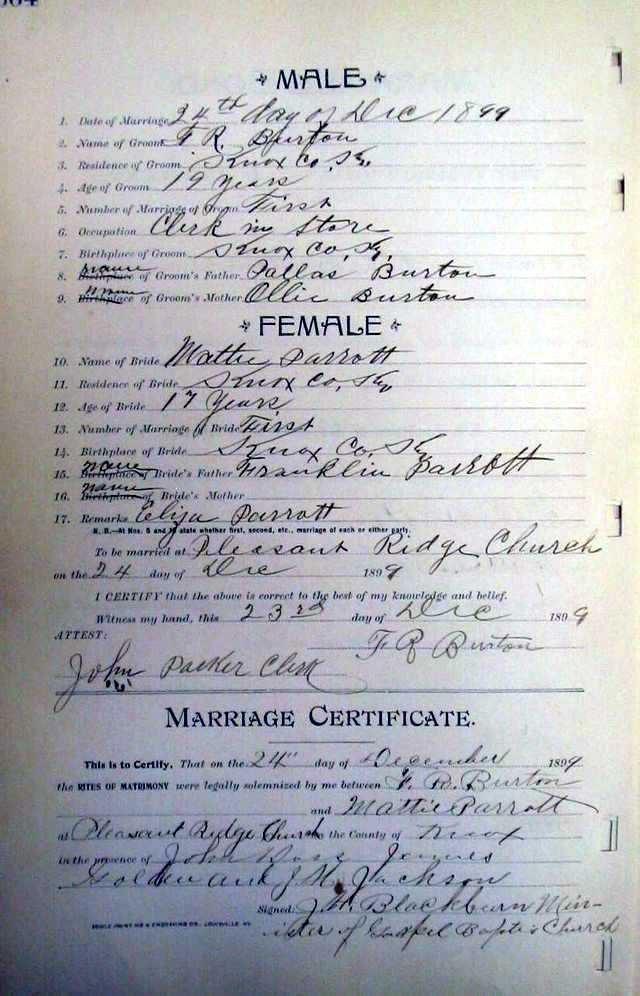 MALE
1. Date of Marriage 24th day of Dec 1899
2. Name of Groom F R. Burton
3. Residence of Groom Knox Co, Ky,
4. Age of Groom 19 Years
5. Number of Marriage of Groom First
6. Occupation Clerk in Store
7. Birthplace of Groom Knox Co, Ky,
8. Birthplace name of Groom's Father Dallas Burton
9. Birthplace name of Groom's Mother Ollie Burton
FEMALE
10. Name of Bride Mattie Parrott
11. Residence of Bride Knox Co, Ky
12. Age of Bride 17 Years,
13. Number of Marriage of Bride First
14. Birthplace of Bride Knox Co. Ky
15. Birthplace name of Bride's Father Franklin Parrott
16. Birthplace name of Bride's Mother
17. Remarks Eliza Parrott
N. B.—At Nos. 5 and 13 state whether first, second, etc., marriage of each or either party.
To be married at Pleasant Ridge Church
on the 24 day of Dec 1899
I CERTIFY that the above is correct to the best of my knowledge and belief.
Witness my hand, this 23rd day of Dec 1899
ATTEST: F R Burton
John Parker Clerk
MARRIAGE CERTIFICATE.
This is to Certify, That on the 24" day of December 1899
the RITES OF MATRIMONY were legally solemnized by me between F. R. Burton
and Mattie Parrott
at Pleasant Ridge Church in the County of Knox
in the presence of John
Golden and J. M. Jackson
Signed. J. W. Blackburn Min-
ister of Gospel Baptis Church